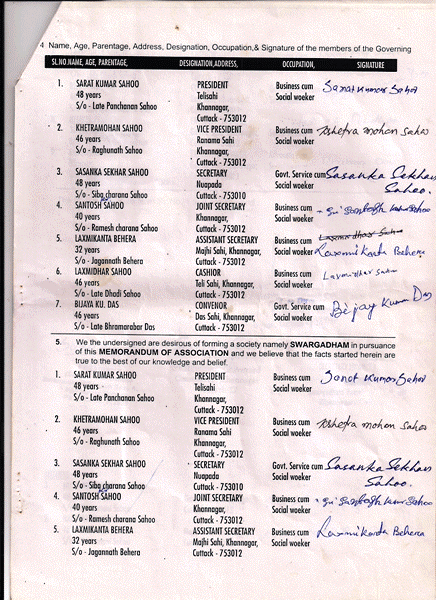 4 Name, Age, Parentage, Address, Designation, Occupation,& Signature of the members of the Governing
SL.NO.NAME, AGE, PARENTAGE, DESIGNATION,ADDRESS, OCCUPATION, SIGNATURE
1. SARAT KUMAR SAHOO PRESIDENT Business cum Sarat Kumar Sahoo
48 years Telisahi Social woeker
S/o - Late Panchanan Sahoo Khannagar,
Cuttack - 753012
2. KHETRAMOHAN SAHOO VICE PRESIDENT Business cum Khetra mohan Sahoo
46 years Ranama Sahi Social woeker
S/o - Raghunath Sahoo Khannagar,
Cuttack - 753012
3. SASANKA SEKHAR SAHOO SECRETARY Govt. Service cum Sasanka Sekhar
48 years Nuapada Social woeker Sahoo.
S/o - Siba charana Sahoo Cuttack - 753010
4. SANTOSH SAHOO JOINT SECRETARY Business cum
40 years Khannagar, Social woeker
S/o - Ramesh charana Sahoo Cuttack - 753012
5. LAXMIKANTA BEHERA ASSISTANT SECRETARY Business cum Laxmidhar Sahoo
32 years Majhi Sahi, Khannagar, Social woeker Laxmikanta Behera
S/o - Jagannath Behera Cuttack - 753012
6. LAXMIDHAR SAHOO CASHIOR Business cum Laxmidhar Sahoo
46 years Teli Sahi, Khannagar, Social woeker
S/o - Late Dhadi Sahoo Cuttack - 753012
7. BIJAYA KU. DAS CONVENOR Govt. Service cum Bijay Kumar Das
46 years Das Sahi, Khannagar, Social woeker
S/o - Late Bhramarabar Das Cuttack - 753012
5. We the undersigned are desirous of forming a society namely SWARGADHAM in pursuance
of this MEMORANDUM OF ASSOCIATION and we believe that the facts started herein are
true to the best of our knowledge and belief.
1. SARAT KUMAR SAHOO PRESIDENT Business cum Sarat Kumar Sahoo
48 years Telisahi Social woeker
S/o - Late Panchanan Sahoo Khannagar,
Cuttack - 753012
2. KHETRAMOHAN SAHOO VICE PRESIDENT Business cum Khetra mohan Sahoo
46 years Ranama Sahi Social woeker
S/o - Raghunath Sahoo Khannagar,
Cuttack - 753012
3. SASANKA SEKHAR SAHOO SECRETARY Govt. Service cum Sasanka Sekhar
48 years Nuapada Social woeker Sahoo.
S/o - Siba charana Sahoo Cuttack - 753010
4. SANTOSH SAHOO JOINT SECRETARY Business cum
40 years Khannagar, Social woeker
S/o - Ramesh charana Sahoo Cuttack - 753012
5. LAXMIKANTA BEHERA ASSISTANT SECRETARY Business cum Laxmikanta Behera
32 years Majhi Sahi, Khannagar, Social woeker
S/o - Jagannath Behera Cuttack - 753012